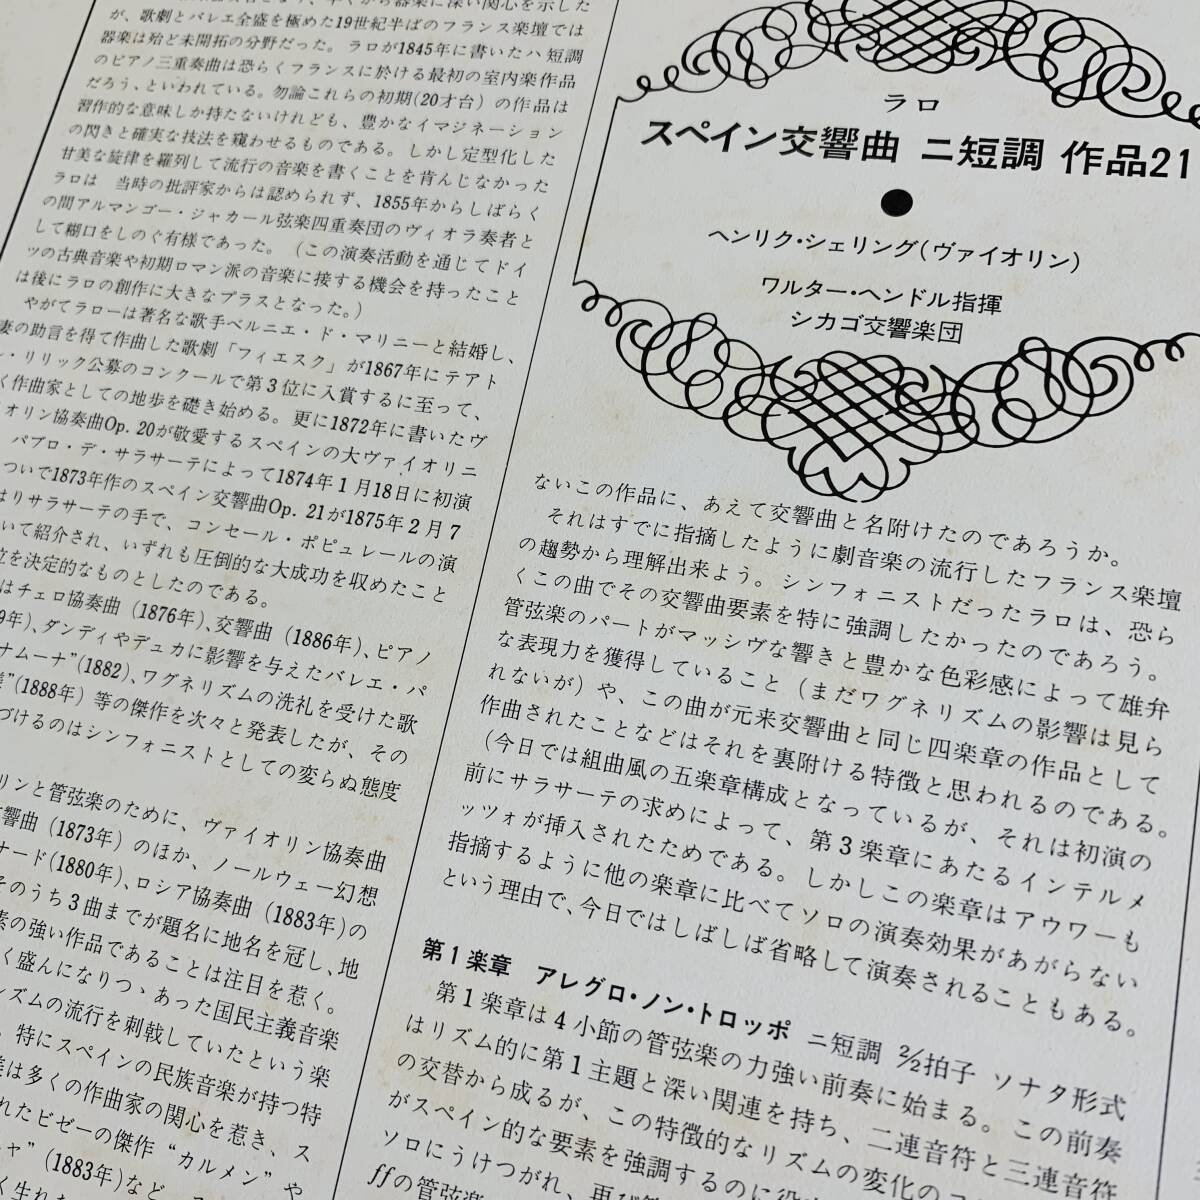 早くから器楽に深い関心を示した
が、歌劇とバレエ全盛を極めた19世紀半ばのフランス楽壇では
器楽は殆ど未開拓の分野だった。ラロが1845年に書いたハ短調
のピアノ三重奏曲は恐らくフランスに於ける最初の室内楽作品
だろう、といわれている。勿論これらの初期(20才台)の作品は
習作的な意味しか持たないけれども、豊かなイマジネーション
の閃きと確実な技法を窺わせるものである。しかし定型化した
甘美な旋律を羅列して流行の音楽を書くことを肯んじなかった
ラロは 当時の批評家からは認められず、1855年からしばらく
の間アルマンゴー・ジャカール弦楽四重奏団のヴィオラ奏者と
して糊口をしのぐ有様であった。(この演奏活動を通じてドイ
ツの古典音楽や初期ロマン派の音楽に接する機会を持ったこと
は後にラロの創作に大きなプラスとなった。)
やがてラローは著名な歌手ベルニエ・ド・マリニーと結婚し、
妻の助言を得て作曲した歌劇「フィエスク」が1867年にテアト
ン・リリック公募のコンクールで第3位に入賞するに至って、
く作曲家としての地歩を礎き始める。更に1872年に書いたヴ
オリン協奏曲Op. 20が敬愛するスペインの大ヴァイオリニ
パブロ・デ・サラサーテによって1874年1月18日に初演
ついで1873年作のスペイン交響曲Op. 21が1875年2月7
はりサラサーテの手で、コンセール・ポピュレールの演
いて紹介され、いずれも圧倒的な大成功を収めたこと
立を決定的なものとしたのである。
はチェロ協奏曲(1876年)、交響曲(1886年)、ピアノ
9年)、ダンディやデュカに影響を与えたバレエ・パ
ナムーナ”(1882)、ワグネリズムの洗礼を受けた歌
”(1888年)等の傑作を次々と発表したが、その
づけるのはシンフォニストとしての変らぬ態度
リンと管弦楽のために、ヴァイオリン協奏曲
響曲(1873年)のほか、ノールウェー幻想
ナード(1880年)、ロシア協奏曲(1883年)の
そのうち3曲までが題名に地名を冠し、地
素の強い作品であることは注目を惹く。
く盛んになりつゝあった国民主義音楽
ズムの流行を刺戟していたという楽
、特にスペインの民族音楽が持つ特
は多くの作曲家の関心を惹き、ス
れたビゼーの傑作“カルメン”や
ャ”(1883年)など、ス
く生れた
ラロ
スペイン交響曲 ニ短調 作品21
●
ヘンリク・シェリング(ヴァイオリン)
ワルター・ヘンドル指揮
シカゴ交響楽団
ないこの作品に、あえて交響曲と名附けたのであろうか。
それはすでに指摘したように劇音楽の流行したフランス楽壇
の趨勢から理解出来よう。シンフォニストだったラロは、恐ら
くこの曲でその交響曲要素を特に強調したかったのであろう。
管弦楽のパートがマッシヴな響きと豊かな色彩感によって雄弁
な表現力を獲得していること(まだワグネリズムの影響は見ら
れないが)や、この曲が元来交響曲と同じ四楽章の作品として
作曲されたことなどはそれを裏附ける特徴と思われるのである。
(今日では組曲風の五楽章構成となっているが、それは初演の
前にサラサーテの求めによって、第3楽章にあたるインテルメ
ッツォが挿入されたためである。しかしこの楽章はアウワーも
指摘するように他の楽章に比べてソロの演奏効果があがらない
という理由で、今日ではしばしば省略して演奏されることもある。
第1楽章 アレグロ・ノン・トロッポ ニ短調 2/2拍子 ソナタ形式
第1楽章は4小節の管弦楽の力強い前奏に始まる。この前奏
はリズム的に第1主題と深い関連を持ち、二連音符と三連音符
の交替から成るが、この特徴的なリズムの変化の
がスペイン的な要素を強調するのに役
ソロにうけつがれ、再び
ffの管弦楽